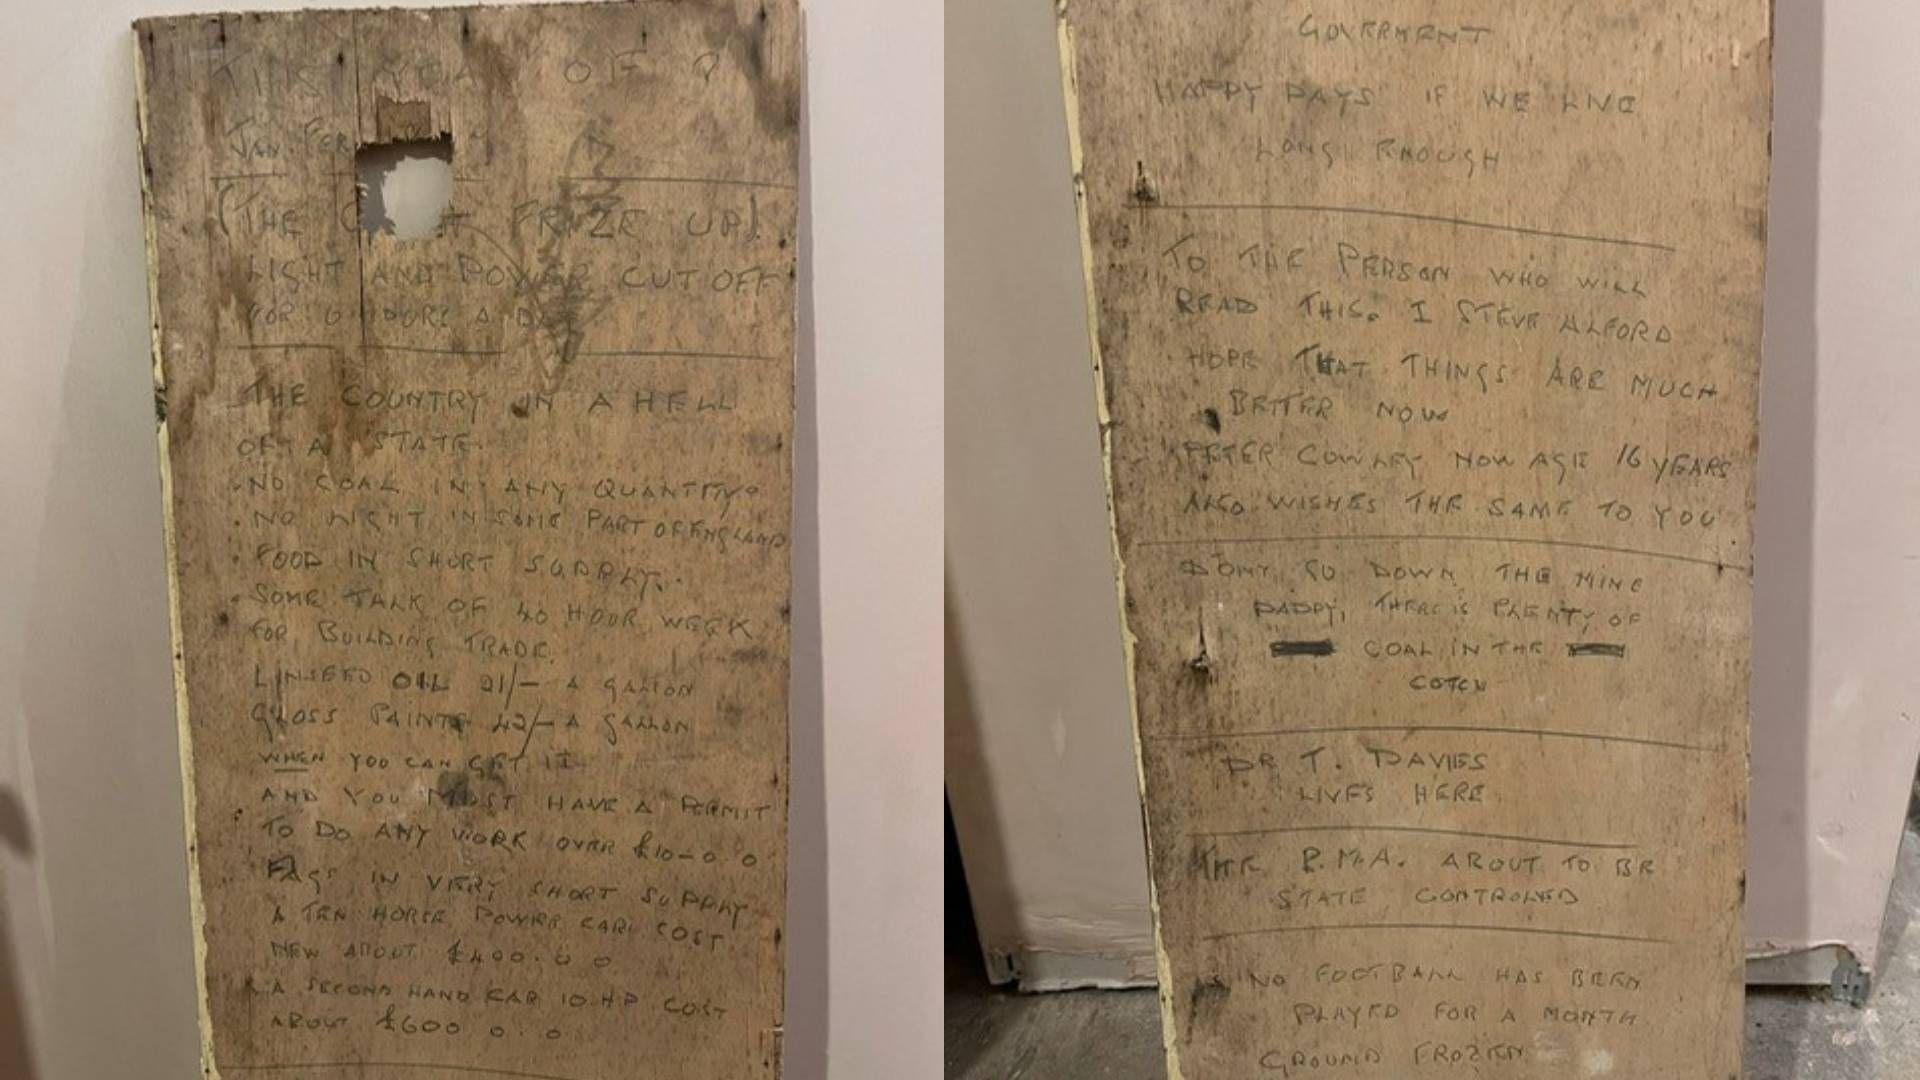 THIS YEAR OF ?
JAN. FEB
(THE FRIZE UP).
LIGHT AND POWER CUT OFF
FOR A
THE COUNTRY IN A HELL
OF A STATE.
. NO COAL IN ANY QUANTITY.
. NO LIGHT IN SOME PART OF ENGLAND
. FOOD IN SHORT SUPPLY.
. SOME TALK OF 40 HOUR WEEK
FOR BUILDING TRADE.
LINSEED OIL 21/- A GALLON
GLOSS PAINT 42/- A GALLON
WHEN YOU CAN GET IT
AND YOU MUST HAVE A PERMIT
TO DO ANY WORK OVER £10-0.0
FAGS IN VERY SHORT SUPPLY
A TEN HORSE POWER CAR COST
NEW ABOUT £400.0 0
A SECOND HAND CAR 10 HP COST
ABOUT £600 0.0
GOVERMENT
HAPPY DAYS IF WE LIVE
LONG ENOUGH
TO THE PERSON WHO WILL
READ THIS. I STEVE ALFORD
HOPE THAT THINGS ARE MUCH
BETTER NOW
PETER COWLEY NOW AGE 16 YEARS
ALSO WISHES THE SAME TO YOU
DONT GO DOWN THE MINE
DADDY, THERE IS PLENTY OF
COAL IN THE
DR T. DAVIES
LIVES HERE
THE B.M.A. ABOUT TO BE
STATE CONTROLED
NO FOOTBALL HAS BEEN
PLAYED FOR A MONTH
GROUND FROZEN